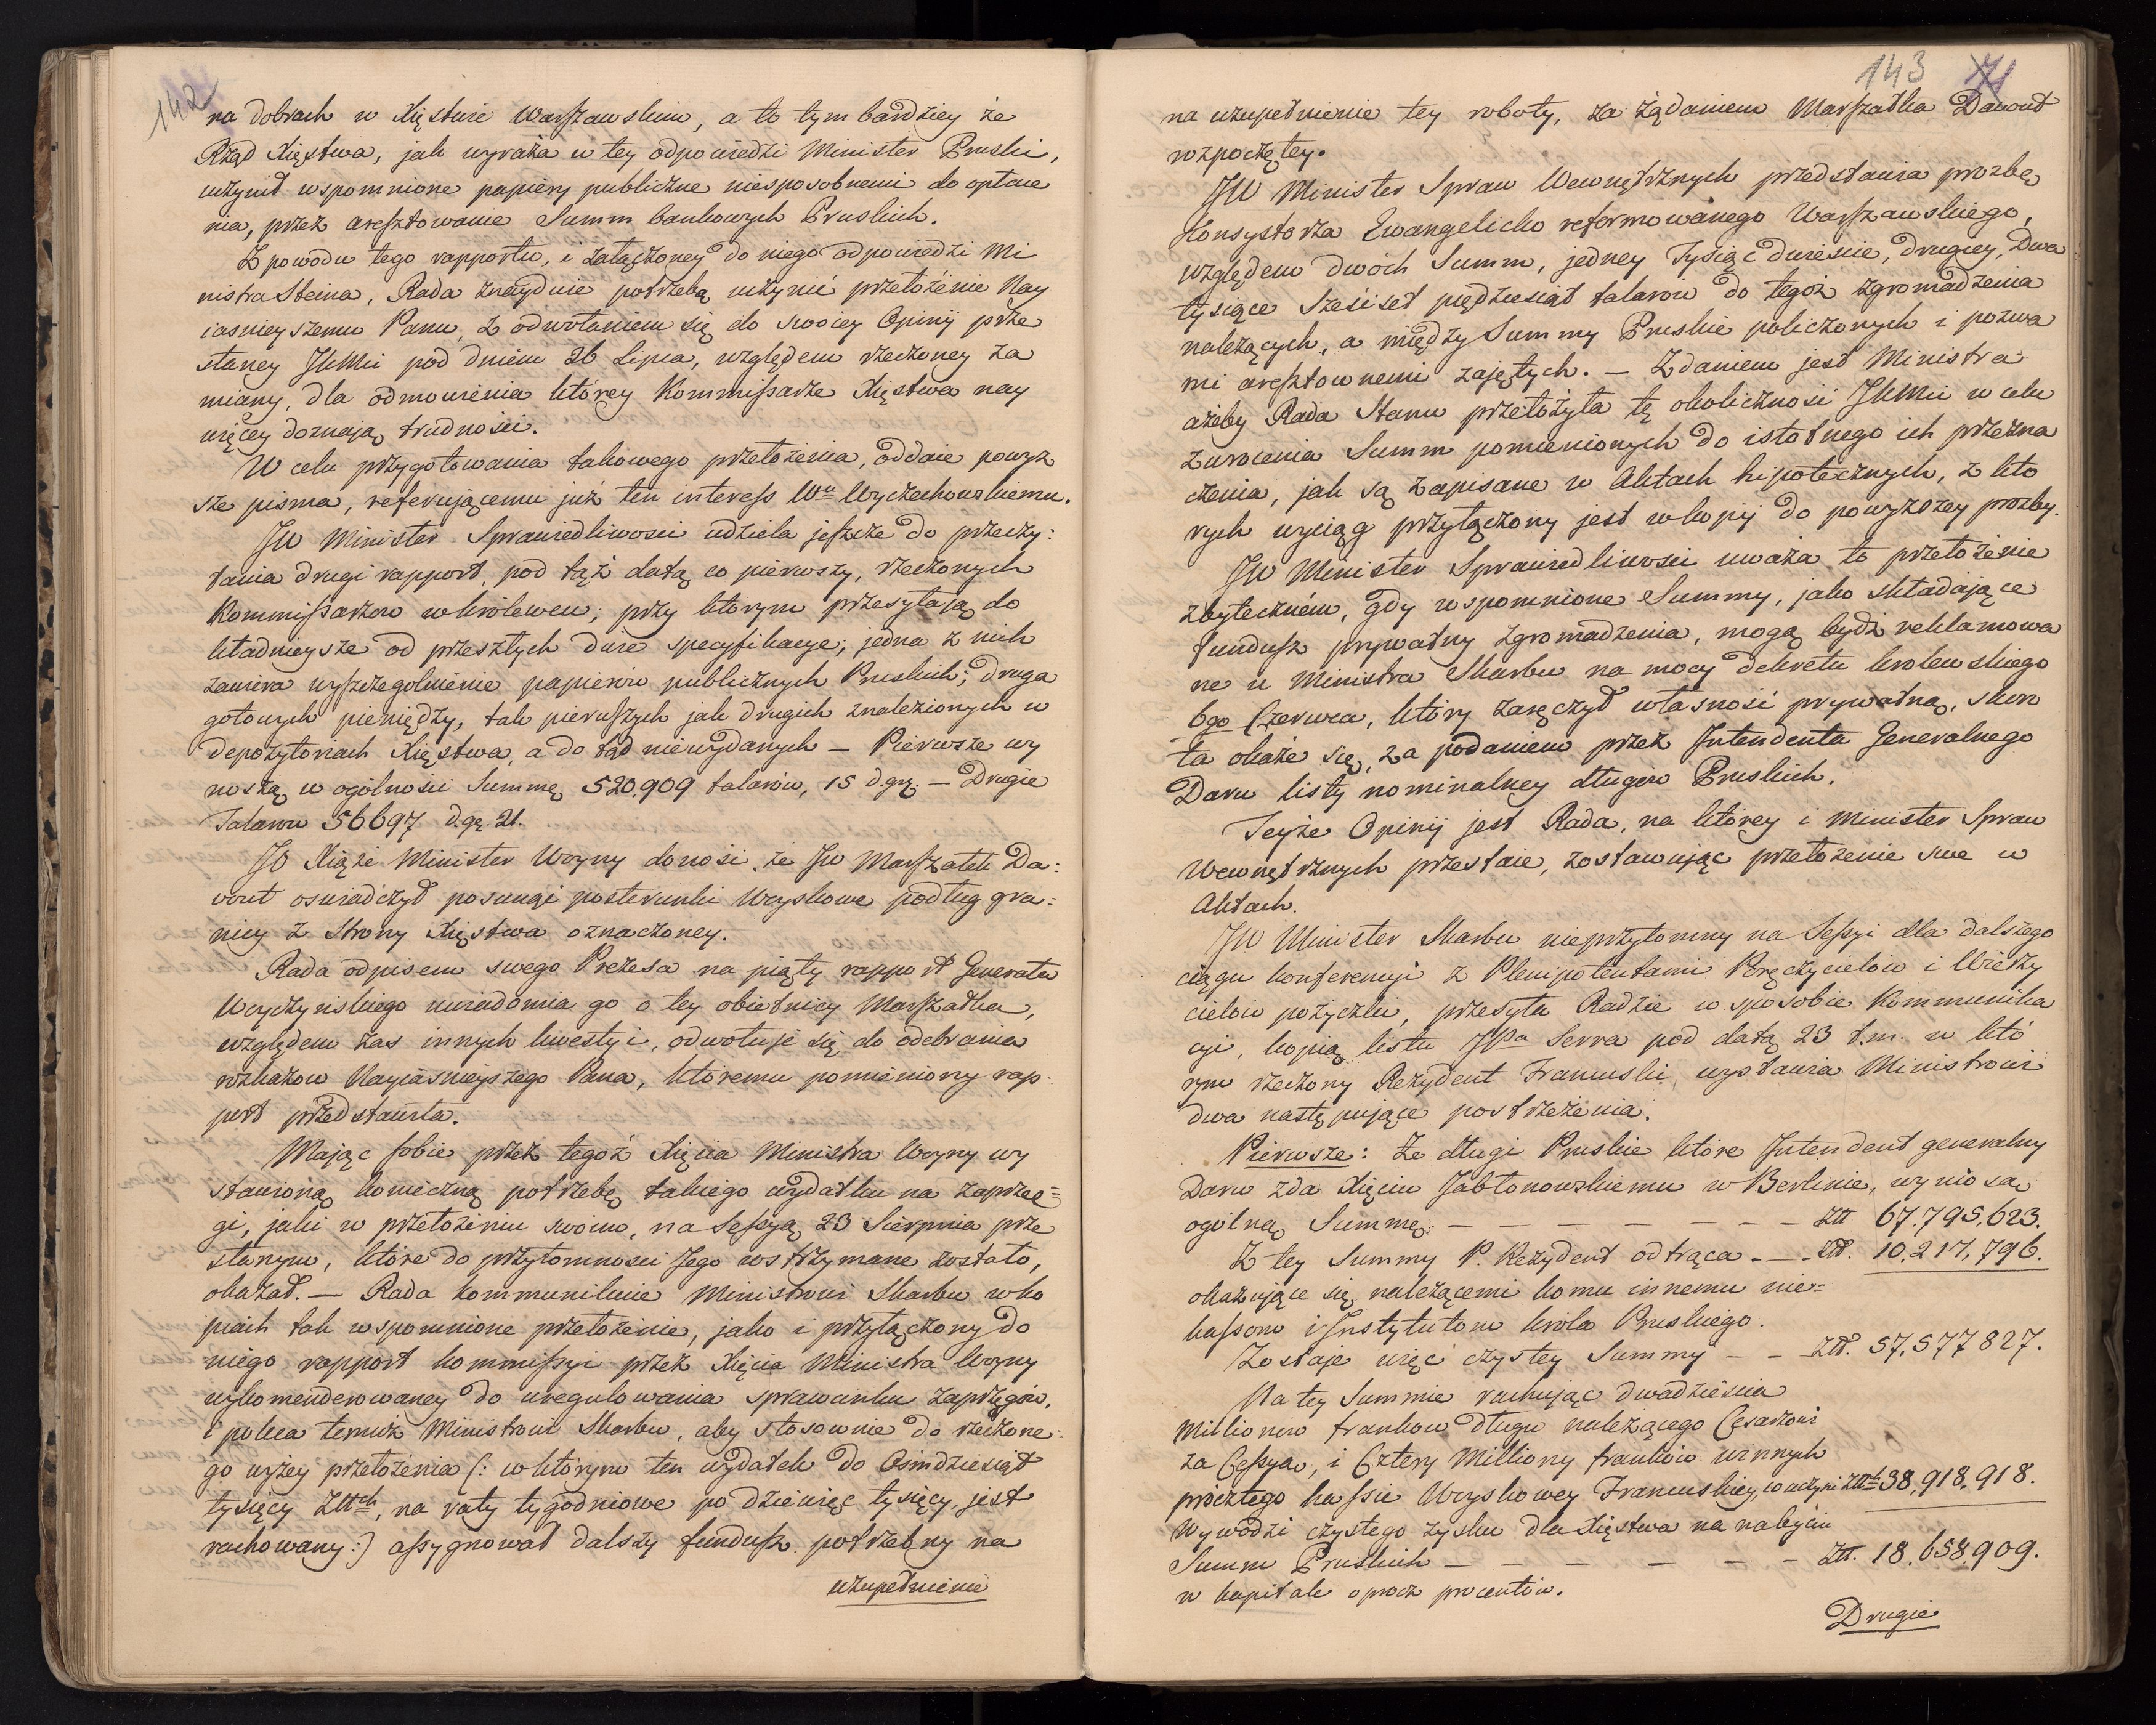 142
na dobrach w Xięstwie Warszawskim, a to tym bardziey że
Rząd Xięstwa, jak wyraża w tey odpowiedzi Minister Pruski,
uczynił wspomnione papiery publiczne niesposobnemi do opłace
nia, przez aresztowanie Summ bankowych Pruskich.
Z powodu tego rapportu, i załączoney do niego odpowiedzi Mi
nistra Steina, Rada znayduie potrzebą uczynić przełożenie Nay
iasnieyszemu Panu, z odwołaniem się do swoiey Opinij prze
słaney JKMci pod dniem 26 Lipca, względem rzeczoney za
miany, dla odmowienia którey Kommissarze Xięstwa nay
więcey doznają trudności.
W celu przygotowania takowego przełożenia, oddaie powyż
sze pisma, referującemu już ten interess Wu Wyczechowskiemu.
JW Minister Sprawiedliwosci udziela jeszcze do przeczy:
tania drugi rapport, pod tąż datą co pierwszy, rzeczonych
Kommissarzow w Królewcu; przy którym przesyłają do
kładnieysze od przeszłych dwie specyfikacye; jedna z nich
zawiera wyszczegolnienie papierów publicznych Pruskich; druga
gotowych pieniędzy, tak pierwszych jak drugich znalezionych w
depozytoriach Xięstwa, a do tąd niewydanych — Pierwsze wy
noszą w ogólności Summę 520.909 talarów, 15 d.grz. — Drugie
Talarow 56697 d.gr. 21.
JO Xiąże Minister Woyny donosi, że JW Marszałek Da:
vout oswiadczył posunąć posterunki Woyskowe podług gra:
nicy z strony Xięstwa oznaczoney.
Rada odpisem swego Prezesa na piąty rapport Generała
Woyczynskiego uwiadomia go o tey obietnicy Marszałka,
względem zas innych kwestyi, odwołuje się do odebrania
rozkazow Nayiasnieyszego Pana, któremu pomieniony rap:
port przedstawiła.
Mając sobie przez tegoż Xięcia Ministra Woyny wy
stawioną konieczną potrzebę takiego wydatku na zaprzę=
gi, jaki w przełożeniu swoim, na Sessyą 23 Sierpnia prze
słanym, które do przytomnosci Jego wstrzymane zostało,
okazał. — Rada kommunikuie Ministrowi Skarbu w ko
piach tak wspomnione przełożenie, jako i przyłączony do
niego rapport kommissyi przez Xięcia Ministra Woyny
wykomenderowaney do uregulowania sprawunku zaprzęgów,
i poleca temuż Ministrowi Skarbu, aby stosownie do rzeczone:
go wyżey przełożenia (: w którym ten wydatek do Ośmdziesiąt
tysięcy Złłch, na raty tygodniowe po dziewięc tysięcy, jest
rachowany:) assygnował dalszy fundusz potrzebny na
uzupełnienie
143 71
na uzupełnienie tey roboty, za żądaniem Marszałka Davout
rozpoczętey.
JW Minister Spraw Wewnętrznych przedstawia prozbę
Konsystorza Ewangelicko reformowanego Warszawskiego,
względem dwóch Summ, jedney Tysiąc dwieście, drugiey, Dwa
tysiące sześćset piędziesiąt talarow do tegoż zgromadzenia
należących, a między Summy Pruskie policzonych i pozwa
mi aresztownemi zajętych. — Zdaniem jest Ministra
ażeby Rada Stanu przełożyła tę okoliczność JKMci w celu
zwrocenia Summ pomienionych do istotnego ich przezna
czenia, jak są zapisane w Aktach hipotecznych, z któ
rych wyciąg przyłączony jest w kopij do powyższey prozby.
JW Minister Sprawiedliwosci uważa to przełożenie
zbyteczném, gdy wspomnione Summy, jako składające
fundusz prywatny zgromadzenia, mogą bydź reklamowa
ne u Ministra Skarbu na mocy dekretu krolewskiego
6go Czerwca, który zaręczył własność prywatną, skoro
ta okaże się, za podaniem przez Intendenta Generalnego
Daru listy nominalney długów Pruskich.
Teyże Opinij jest Rada, na którey i Minister Spraw
Wewnętrznych przestaie, zostawując przełożenie swe w
Aktach.
JW Minister Skarbu nieprzytomny na Sessyi dla dalszego
ciągu konferencyi z Plenipotentami Poręczycielów i Wierzy
cielow pożyczki, przesyła Radzie w sposobie kommunika
cyi, kopią listu JPa Serra pod datą 23 t.m. w któ
rym rzeczony Rezydent Francuski, wystawia Ministrowi
dwa następujące postrzeżenia.
Pierwsze: Ze długi Pruskie które Intendent generalny
Daru zda Xięciu Jabłonowskiemu w Berlinie, wyniosą
ogólną Summę: — — — — — — — Złł 67.795.623.
Z tey Summy P. Rezydent odtrąca — Złł. 10.217.796.
okazujące się należącemi komu innemu nie=
kassom i Instytutom krola Pruskiego.
Zostaje więć czystey Summy — — Złł. 57.577827.
Na tey Summie rachując dwadzieścia
Millionow frankow długu należącego Cesarzowi
za Cessyą, i Cztery Milliony franków winnych
prócztego kassie Woyskowey Francuskiey, co uczyni Złłch 38,918,918.
Wywodzi czystego zysku dla Xięstwa na nabyciu
Summ Pruskich — — — — — — Złł. 18.658.909.
w kapitale oprocz procentów.
Drugie